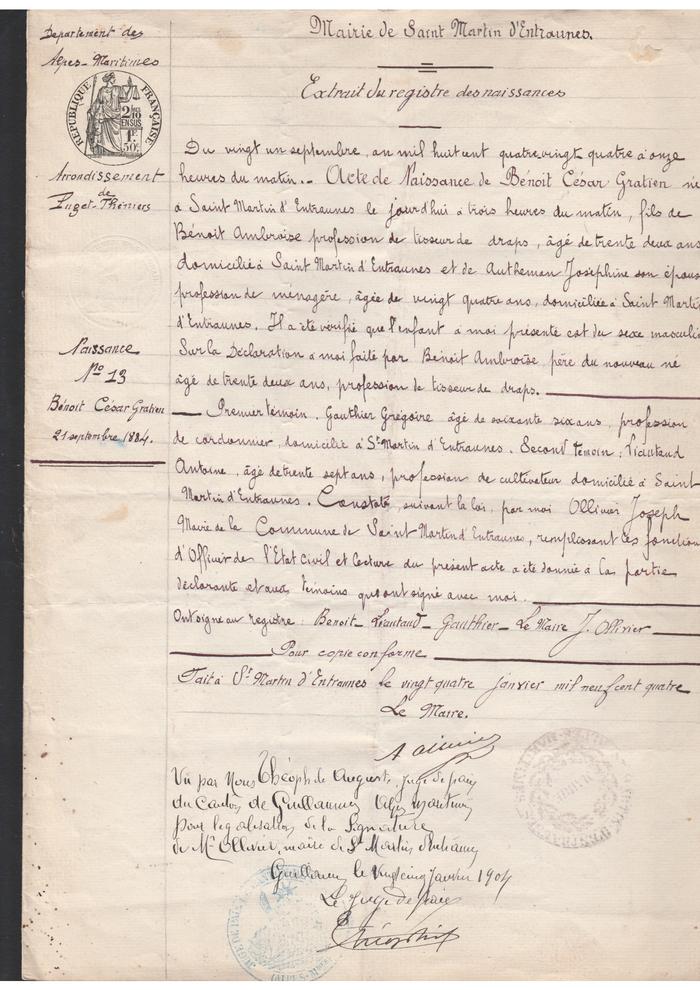 Mairie de Saint Martin d'Entraunes.
Departement des
Alpes-Maritimes
RÉPUBLIQUE FRANÇAISE
2/10 EN SUS
1F 50c
Arrondissement
de
Puget-Théniers
Extrait du registre des naissances
Du vingt un septembre, an mil huit cent quatre vingt quatre à onze
heures du matin. - Acte de Naissance de Bénoit César Gratien né
à Saint Martin d'Entraunes le jourd'hui à trois heures du matin, fils de
Bénoit Ambroise profession de tisseur de draps, âgé de trente deux ans
domicilié à Saint Martin d'Entraunes et de Autheman Joséphine son épous
profession de ménagère, âgée de vingt quatre ans, domiciliée à Saint Martin
d'Entraunes. Il a été vérifié que l'enfant à moi présenté est du sexe masculi
Sur la Déclaration à moi faite par Bénoit Ambroise, père du nouveau né
âgé de trente deux ans, profession de tisseur de draps.
Naissance
No 13
Bénoit César Gratien
21 septembre 1884.
Premier témoin. Gauthier Grégoire âgé de soixante six ans, profession
de cordonnier, domicilié à St Martin d'Entraunes. Second témoin: Liautaud
Antoine, âgé de trente sept ans, profession de cultivateur domicilié à Saint
Martin d'Entraunes. Constaté, suivant la loi, par moi Ollivier Joseph
Maire de la Commune de Saint Martin d'Entraunes, remplissant les fonction
d'Officier de l'Etat Civil et lecture du présent acte a été donnée à la partie
déclarante et aux témoins qui ont signé avec moi.
Ont signé au registre: Benoit - Liautaud - Gauthier - Le Maire J. Ollivier
Pour copie conforme
Fait à St Martin d'Entraunes le vingt quatre janvier mil neuf cent quatre
Le Maire.
Vu par Nous Théophile Auguste, Juge de paix
du Canton de Guillaumes Alpes Maritimes
pour legalisation de la Signature
de Mr Ollivier, maire de St Martin d'Entraunes
Guillaumes le vingt cinq Janvier 1904
Le Juge de paix